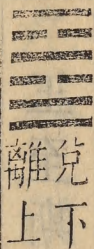 兌下
離上